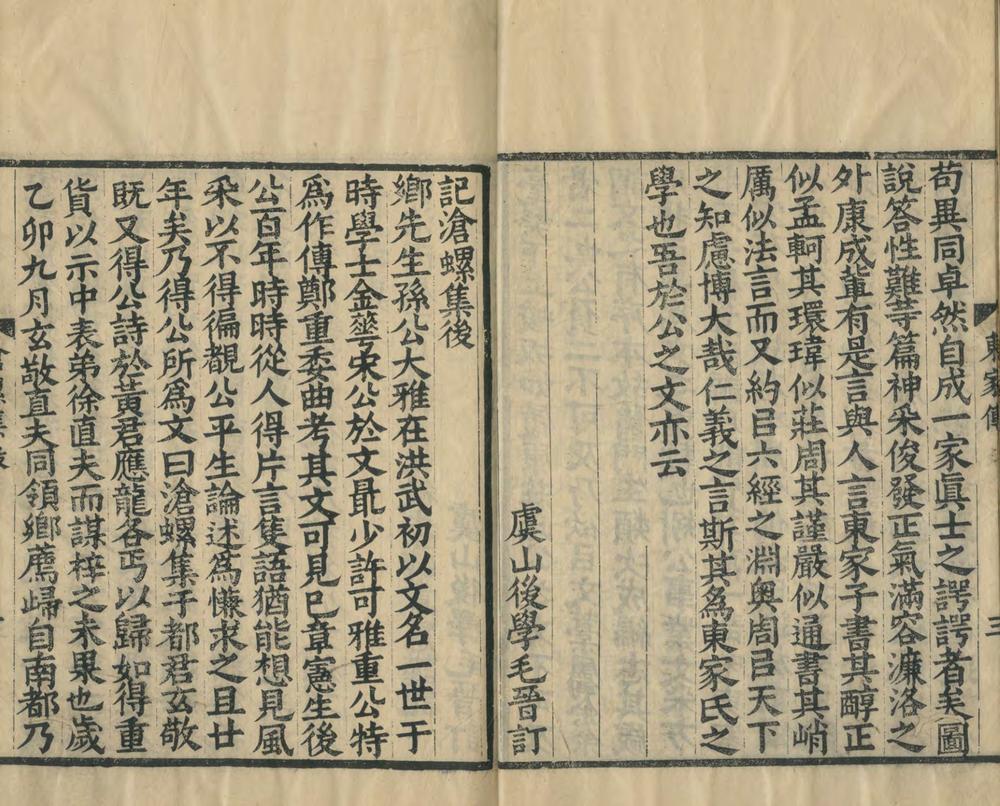 東家傳
三
苟異同卓然自成一家眞士之諤諤者矣圖
說答性難等篇神采俊發正氣滿容濂洛之
外康成軰有是言與人言東家子書其醇正
似孟軻其環瑋似莊周其謹嚴似通書其峭
厲似法言而又約㠯六經之淵奧周㠯天下
之知慮博大哉仁義之言斯其爲東家氏之
學也吾於公之文亦云
虞山後學毛晉訂
記滄螺集後
鄉先生孫公大雅在洪武初以文名一世于
時學士金華宋公於文最少許可雅重公特
爲作傳鄭重委曲考其文可見巳章憲生後
公百年時時從人得片言隻語猶能想見風
采以不得徧覩公平生論述爲慊求之且廿
年矣乃得公所爲文曰滄螺集于都君玄敬
既又得公詩於黃君應龍各丐以歸如得重
貨以示中表弟徐直夫而謀梓之未果也歲
乙卯九月玄敬直夫同領鄉薦歸自南都乃